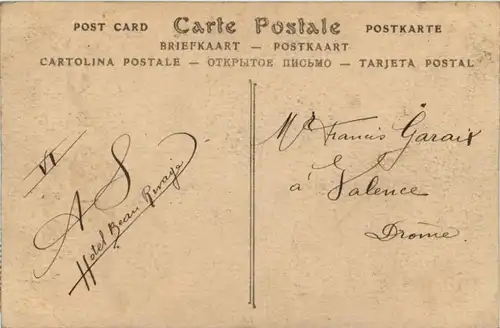 POST CARD Carte Postale POSTKARTE
BRIEFKAART — POSTKAART
CARTOLINA POSTALE — ОТКРЫТОЕ ПИСЬМО — TARJETA POSTAL
VI
A S
Hotel Beau Rivage
Mr Francis Garaix
à Valence
Drôme